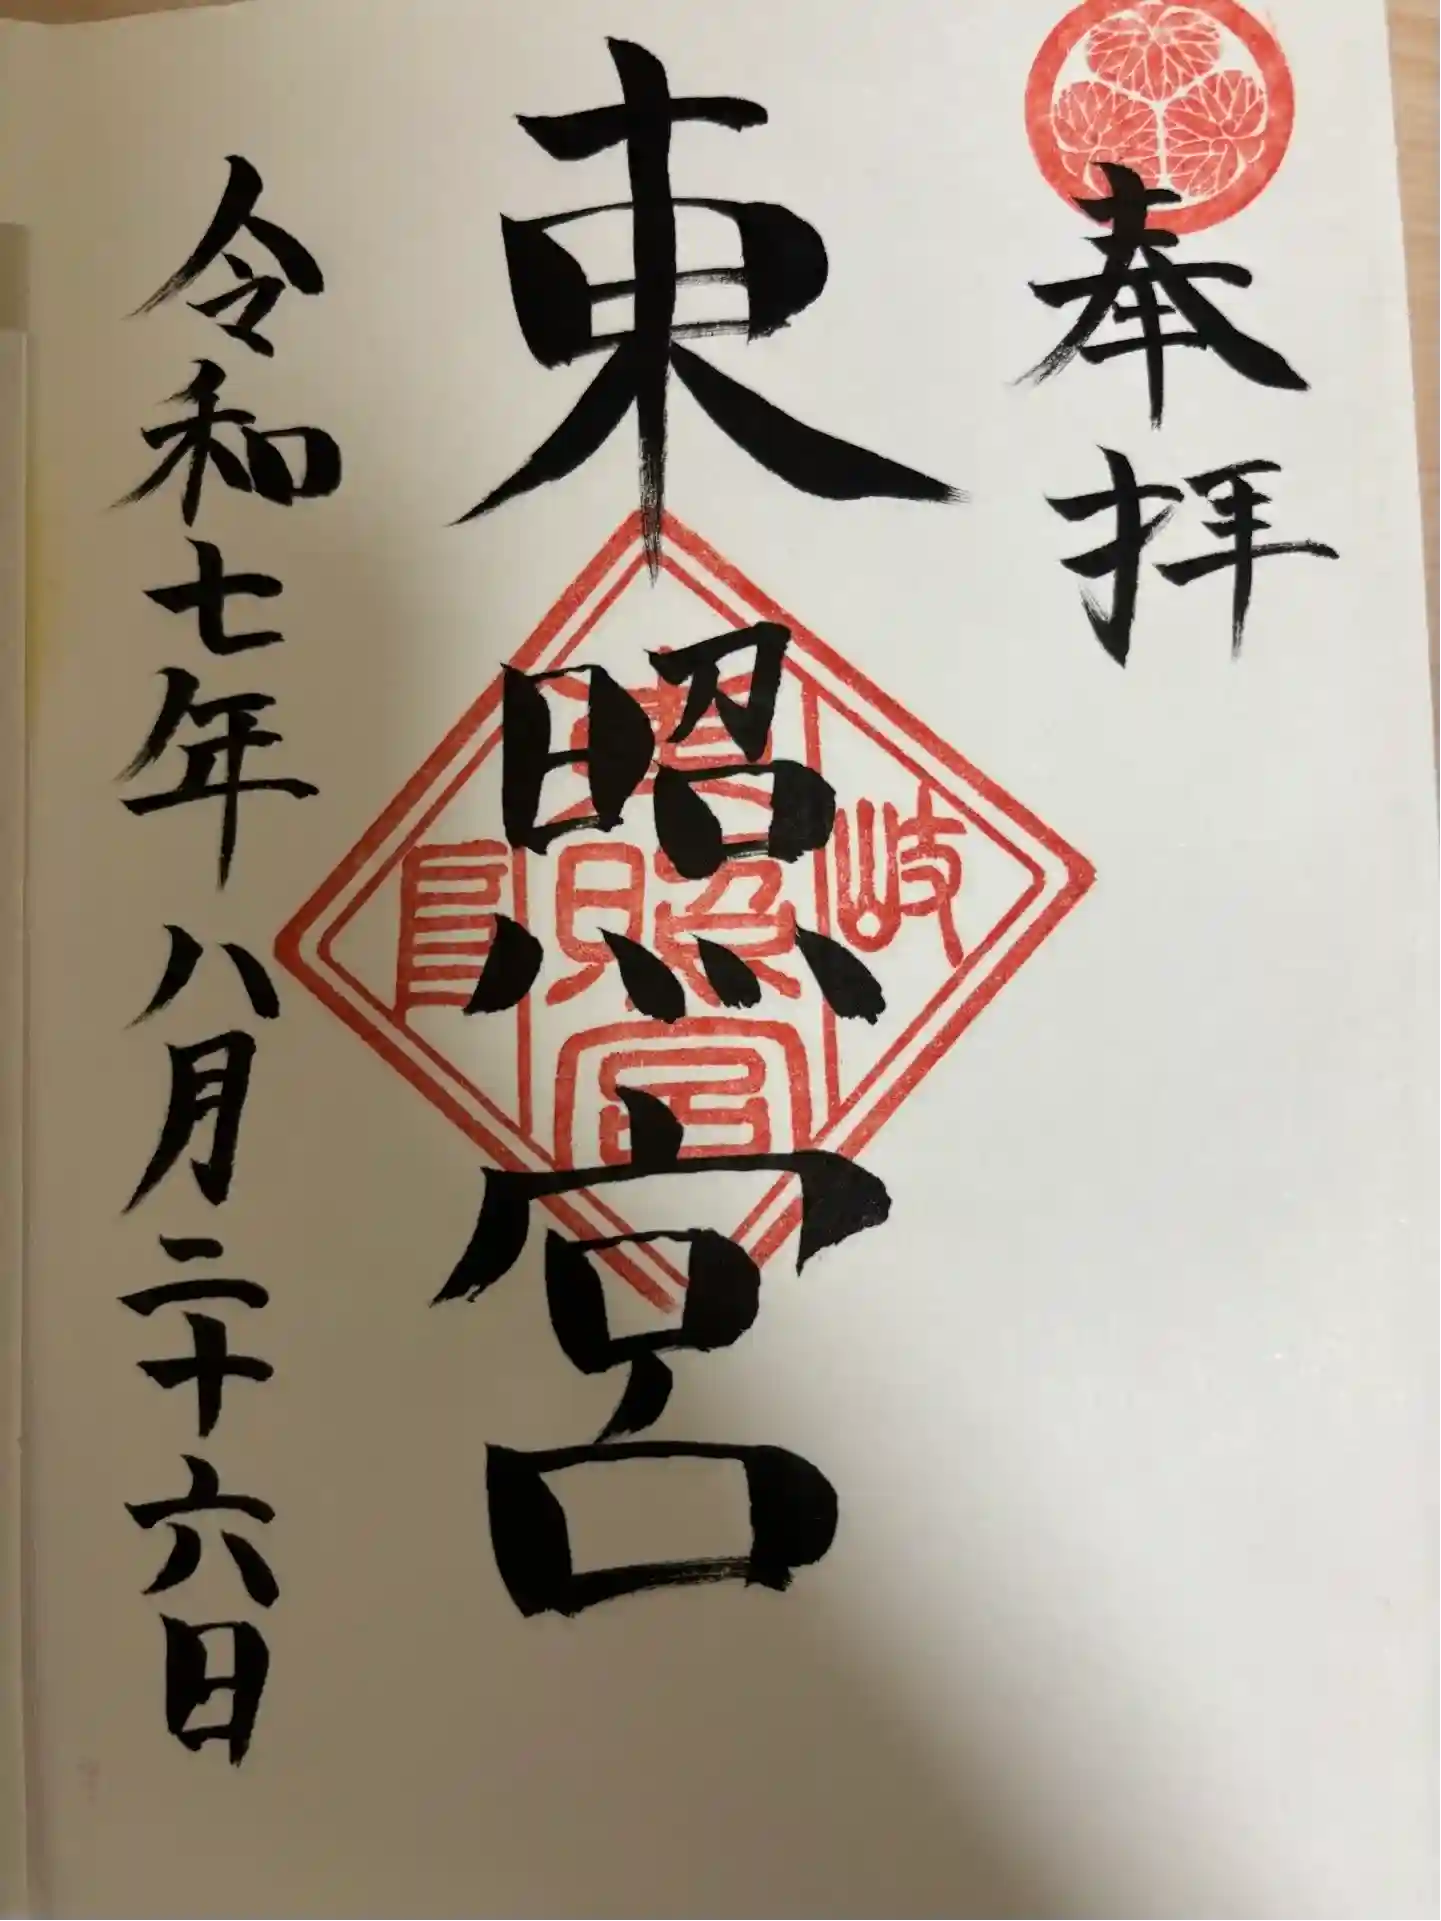 奉拝
東照宮
岐
照
宮
阜
令和七年八月二十六日